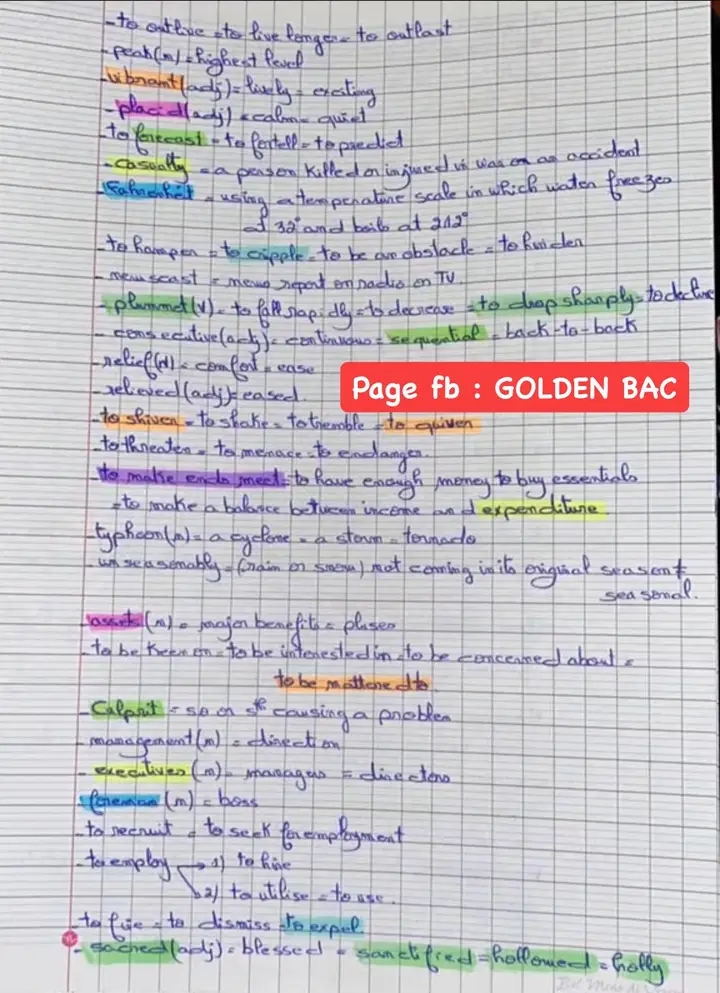 - to outlive = to live longer = to outlast
- peak (n) = highest level
- vibrant (adj) = lively = exciting
- placid (adj) = calm = quiet
- to forecast = to fortell = to predict
- casualty = a person killed or injured in war or an accident
- Fahrenheit = using a temperature scale in which water freezes
at 32° and boils at 212°
- to hamper = to cripple = to be an obstacle = to hinder
- newscast = news report on radio or TV
- plummet (v) = to fall rapidly = to decrease = to drop sharply = to decline
- consecutive (adj) = continuous = sequential = back-to-back
- relief (n) = comfort = ease
- relieved (adj) = eased.
Page fb : GOLDEN BAC
- to shiver = to shake = to tremble = to quiver
- to threaten = to menace = to endanger.
- to make ends meet = to have enough money to buy essentials
= to make a balance between income and expenditure.
- typhoon (n) = a cyclone = a storm = tornado
- unseasonably = (rain or snow) not coming in its original season ≠
seasonal.
- assets (n) = major benefits = pluses
- to be keen on = to be interested in = to be concerned about =
to be mattered to
- Calprit = so or sth causing a problem
- management (n) = direction
- executives (n) = managers = directors
- foreman (n) = boss
- to recruit = to seek for employment
- to employ → 1) to hire
2) to utilise = to use.
- to fire = to dismiss = to expel
- sacred (adj) = blessed = sanctified = hollowed = holly